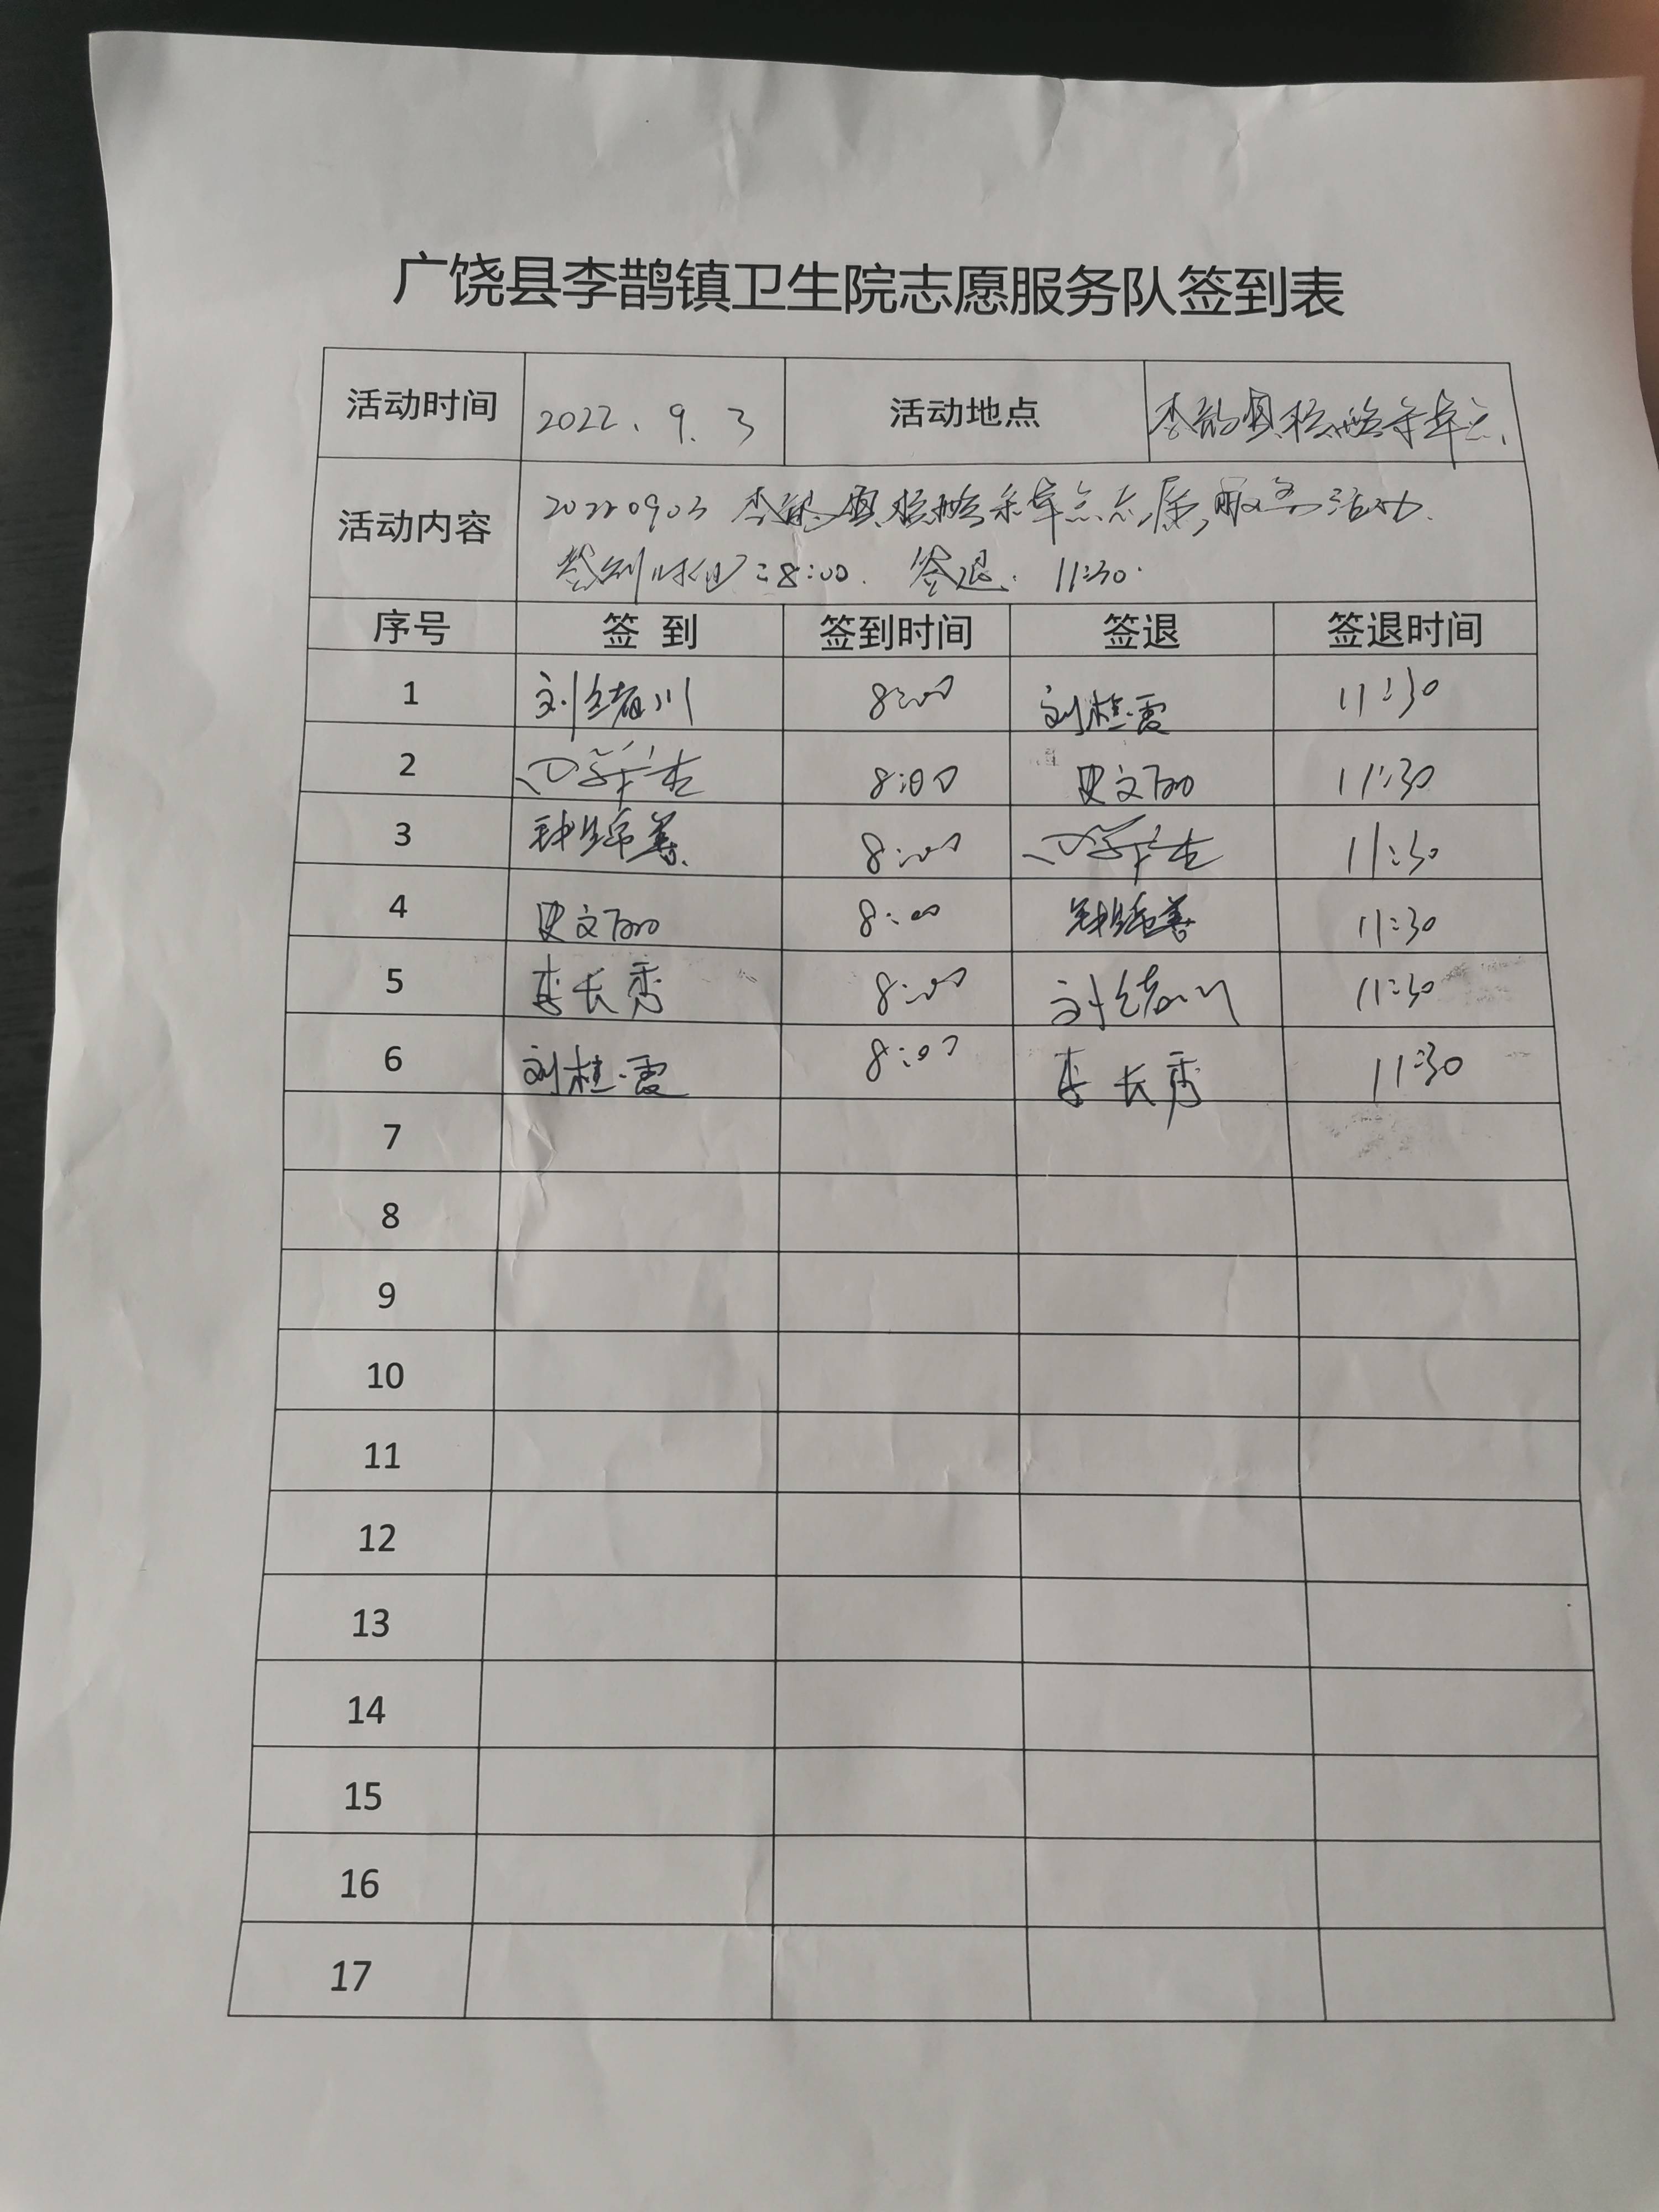 广饶县李鹊镇卫生院志愿服务队签到表
活动时间 2022.9.3 活动地点 李鹊镇核酸采样点
活动内容 20220903李鹊镇核酸采样点志愿服务活动.
签到时间:8:00. 签退: 11:30.
序号 签到 签到时间 签退 签退时间
1 刘绪川 8:00 刘桂霞 11:30
2 8:00 史文 11:30
3 8:00 11:30
4 史文 8:00 11:30
5 李长秀 8:00 刘绪川 11:30
6 刘桂霞 8:00 李长秀 11:30
7
8
9
10
11
12
13
14
15
16
17